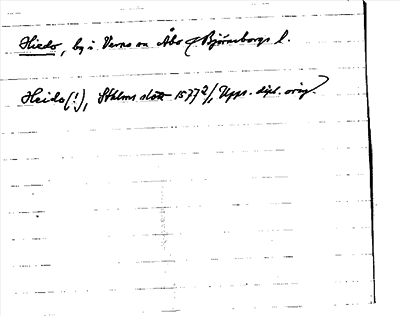 Hiedo, by i Vemo sn Åbo o. Björneborgs l.
Heido (!), Sthlms slott 1577 2/1, Upps. dipl. orig.